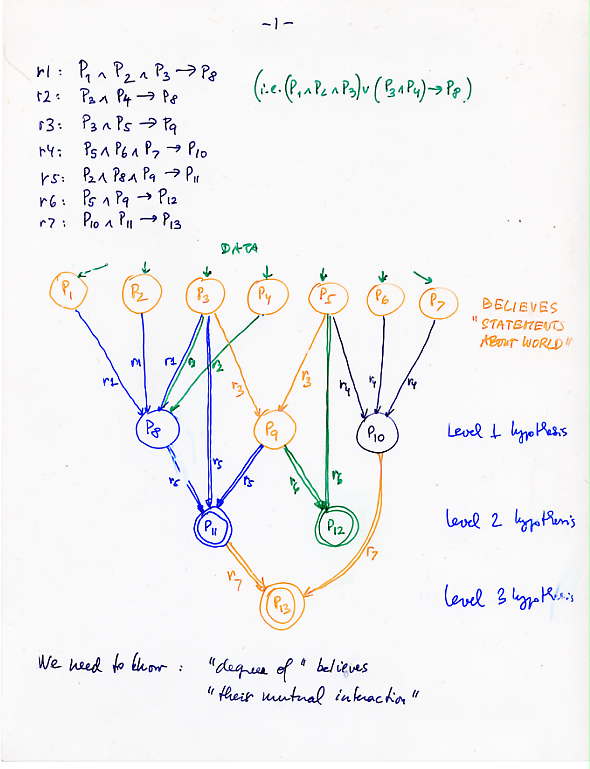 -1-
r1: P1 ∧ P2 ∧ P3 → P8
(i.e. (P1 ∧ P2 ∧ P3) ∨ (P3 ∧ P4) → P8)
r2: P3 ∧ P4 → P8
r3: P3 ∧ P5 → P9
r4: P5 ∧ P6 ∧ P7 → P10
r5: P2 ∧ P8 ∧ P9 → P11
r6: P5 ∧ P9 → P12
r7: P10 ∧ P11 → P13
DATA
P1 P2 P3 P4 P5 P6 P7
BELIEVES
"STATEMENTS
ABOUT WORLD"
r1 r1 r1 r2 r2 r3 r3 r4 r4 r4
P8 P9 P10
Level 1 hypothesis
r5 r5 r5 r6 r6
P11 P12
Level 2 hypothesis
r7 r7
P13
Level 3 hypothesis
We need to know: "degree of" believes
"their mutual interaction"